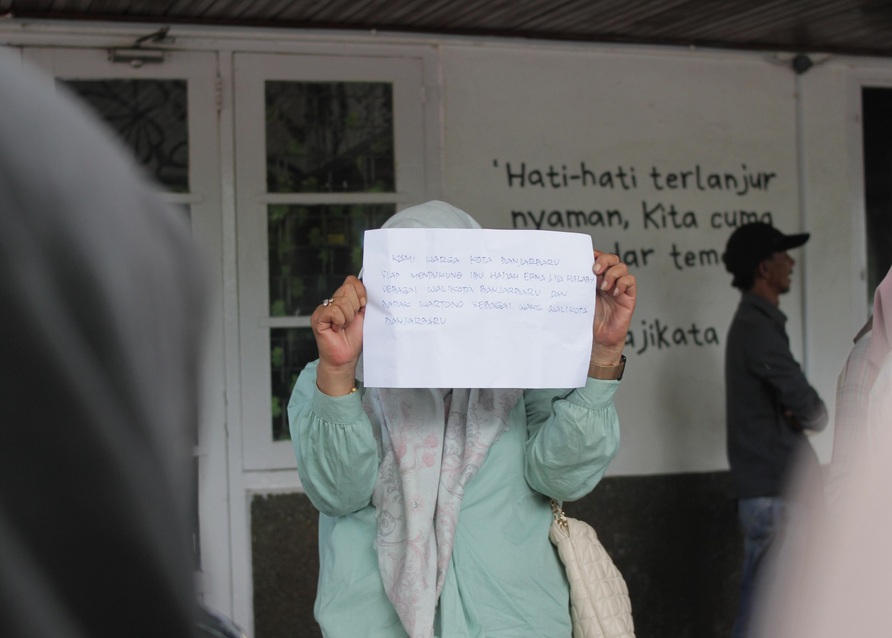 'Hati-hati terlanjur
nyaman, Kita cuma
dar tem
ajikata
KAMI WARGA KOTA BANJARBARU
SIAP MENDUKUNG IBU HAJJAH ERNA LISA HALABY
SEBAGAI WALIKOTA BANJARBARU DAN
BAPAK WARTONO SEBAGAI WAKIL WALIKOTA
BANJARBARU